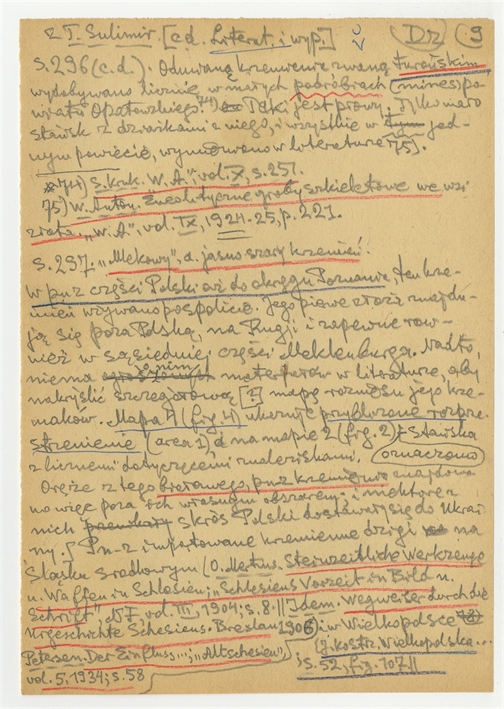 z T. Sulimir. [cd. Literat. i wyp.] Dz 9
S. 296 (c.d.). Odmianę krzemienia zwaną turońskim
wydobywano licznie w małych podróbrach (mines) po-
wiatu Opatowskiego. 74) Taki jest prawy. Tylko mało
stanisk z dzwaikami z niego, i wszystkie w tym jed-
nym powiecie, wymieniono w literaturze 75].
74) S. Kruk. W.A.", vol. X, s. 251.
75) W. Anton. Eneolityczne groby szkieletowe we wsi
Złota. „W. A", vol. IX, 1924-25, p. 221.
S. 297. „Mlekowy", a. jasno szary krzemień.
W pn z części Polski aż do okręgu Poznania, ten krze-
mień używano pospolicie. Jego pierwe złoża znajdu-
ją się poza Polską, na Rugji i zapewne row-
nież w sąsiedniej części Meklenburga. Nadto,
niema materjałów w literaturze, aby
nakryślić szczegółową [1] mapę roznosu jego krze-
maków. Mapa 4 (fig. 4) ukazuje przybliżone rozpre-
strzenienie (area 1), a na mapie 2 (fig. 2) Stańska
z licznemi dotyczącemi znaleziskami. oznaczono
Oręże z tego bretowego, pnz krzemienia znajdowa-
no więc poza ich własnem obszarem i niektóre z
nich skroś Polski dostawały się do Ukrai-
ny. Pn-z importowane krzemienne dzięgi na
Śląsku środkowym (O. Mertins. Steinzeitliche Werkzeuge
u. Waffen in Schlesien; „Schlesiens Vorzeit in Bild u.
Schrift", NF, vol. III, 1904; s. 8. || Idem. Wegweiser durch die
Urgeschichte Schesiens. Breslau 1906; i w Wielkopolsce
(J. Kostrz. Wielkopolska...
; s. 52, fig. 107 ||
Petersen. Der Einfluss..."; „Altschesien",
vol. 5, 1934; s. 58